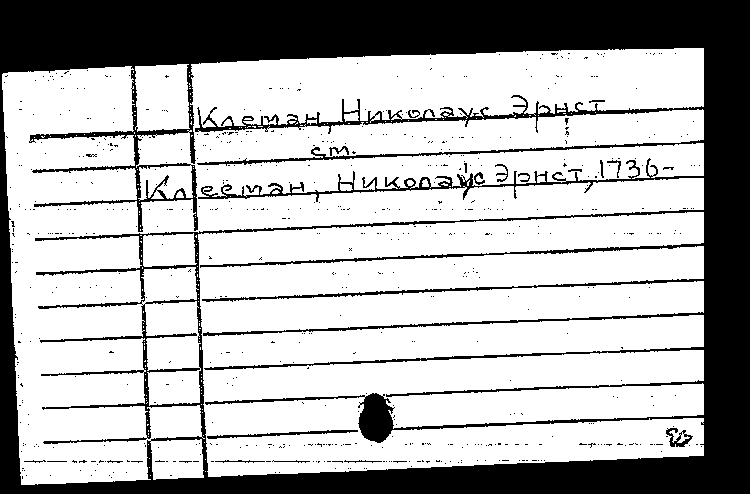 Клеман, Николаус Эрнст
см.
Клееман, Николаус Эрнст, 1736-